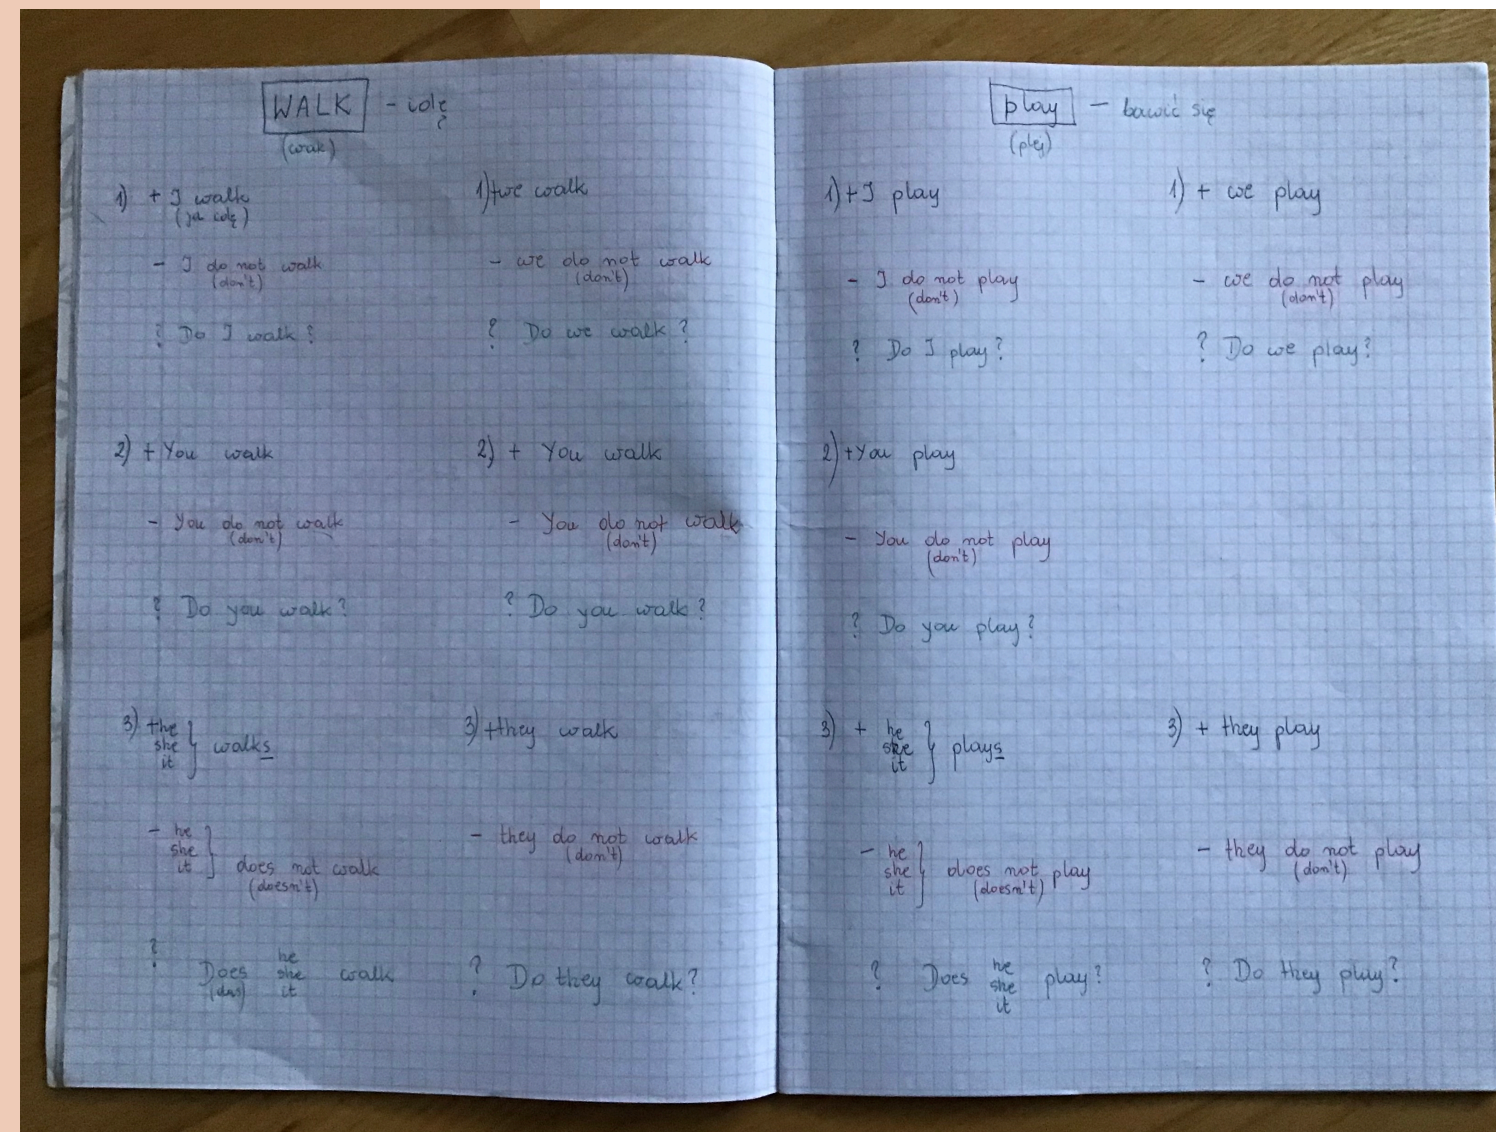 WALK - idę
(wak)
1) + I walk
(ja idę)
- I do not walk
(don't)
? Do I walk?
2) + You walk
- You do not walk
(don't)
? Do you walk?
3) + he
she
it } walks
- he
she
it } does not walk
(doesn't)
?
Does he she it walk
(das)
1) + we walk
- we do not walk
(don't)
? Do we walk?
2) + You walk
- You do not walk
(don't)
? Do you walk?
3) + they walk
- they do not walk
(don't)
? Do they walk?
play - bawić się
(plej)
1) + I play
- I do not play
(don't)
? Do I play?
2) + You play
- You do not play
(don't)
? Do you play?
3) + he
she
it } plays
- he
she
it } does not play
(doesn't)
? Does he she it play?
1) + we play
- we do not play
(don't)
? Do we play?
3) + they play
- they do not play
(don't)
? Do they play?